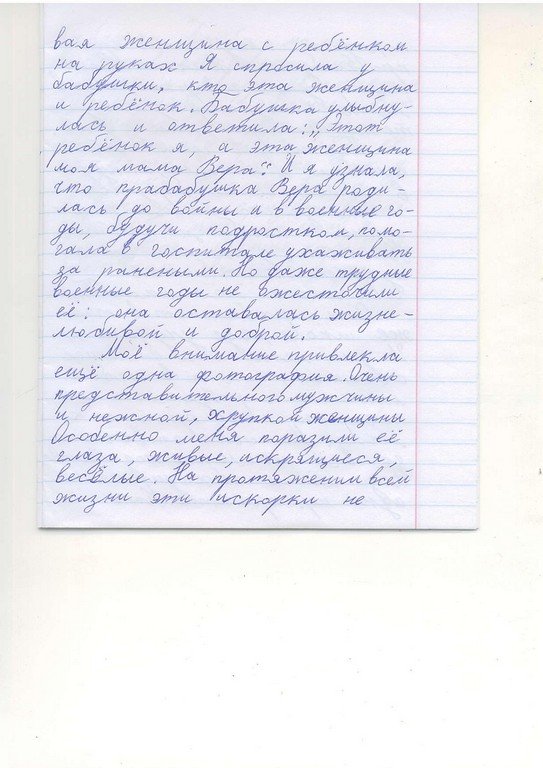 вая женщина с ребёнком
на руках Я спросила у
бабушки, кто эта женщина
и ребёнок. Бабушка улыбну-
лась и ответила: „Этот
ребёнок я, а эта женщина
моя мама Вера". И я узнала,
что прабабушка Вера роди-
лась до войны и в военные го-
ды, будучи подростком, помо-
гала в госпитале ухаживать
за ранеными. Но даже трудные
военные годы не ожесточили
её: она оставалась жизне-
любивой и доброй.
Моё внимание привлекла
ещё одна фотография. Очень
представительного мужчины
и нежной, хрупкой женщины
Особенно меня поразили её
глаза, живые, искрящиеся,
весёлые. На протяжении всей
жизни эти искорки не